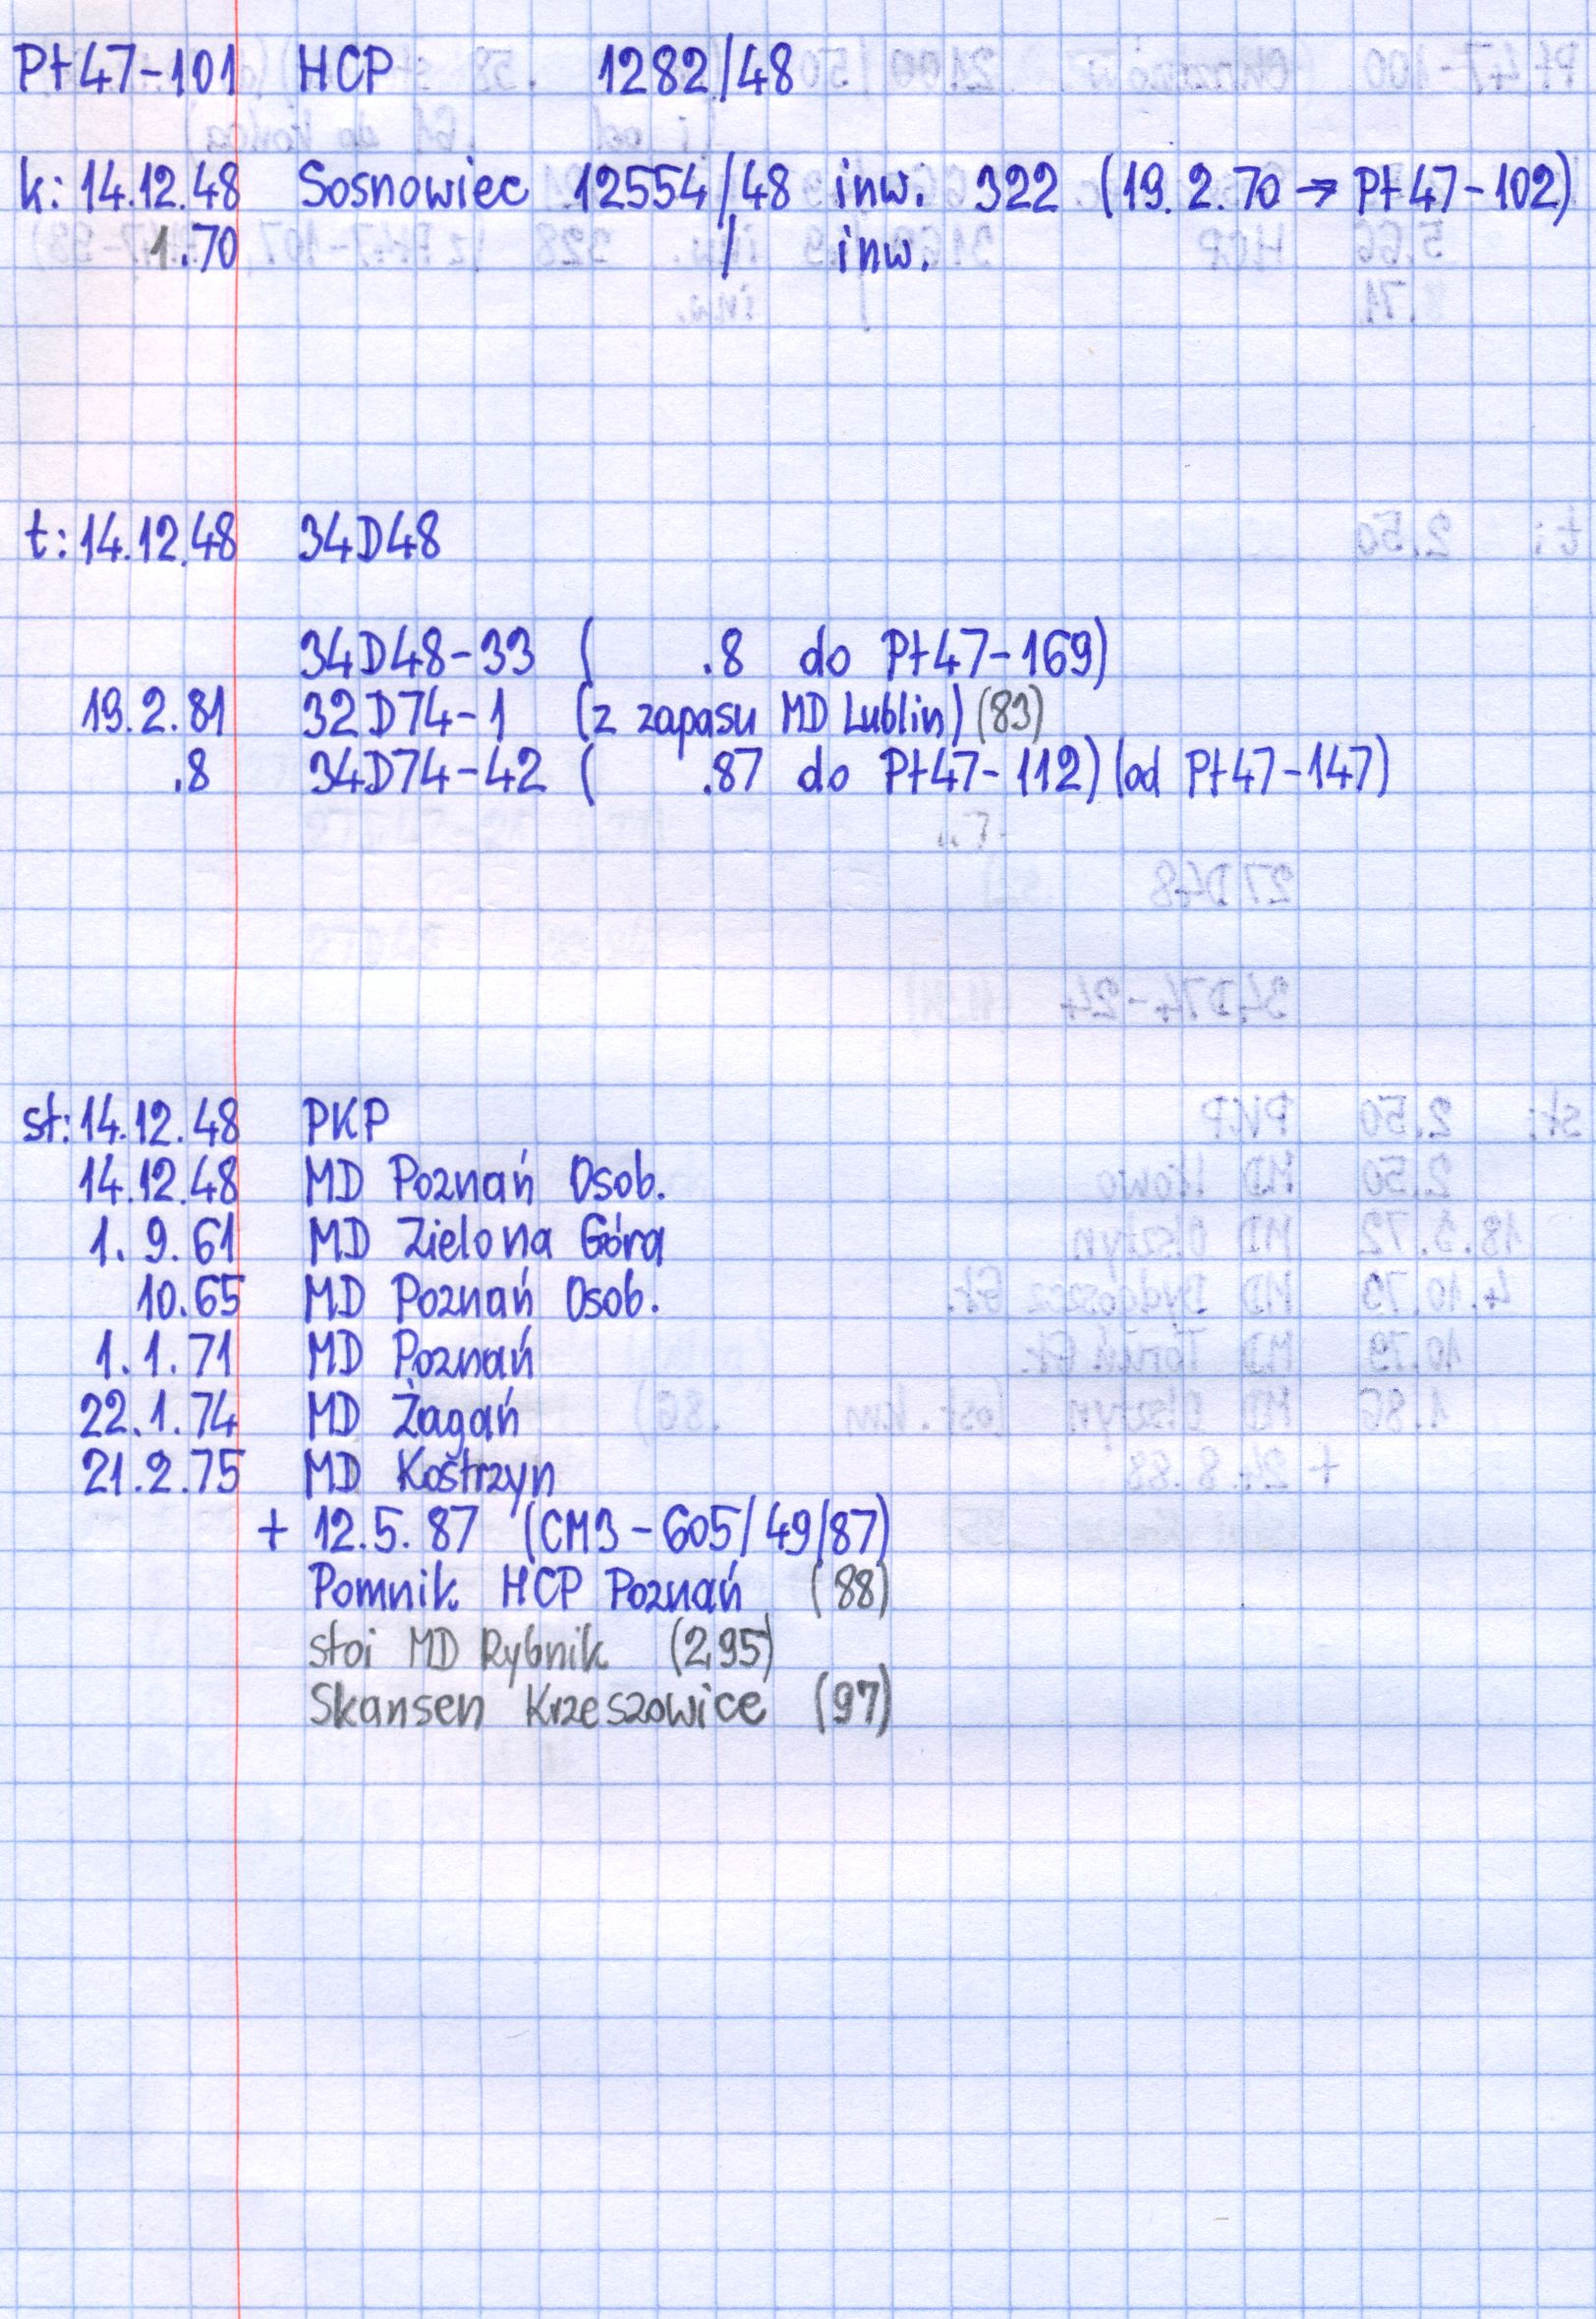 Pt47-101 HCP 1282/48
k: 14.12.48 Sosnowiec 12554/48 inw. 322 (19.2.70 → Pt47-102)
1.70 / inw.
t: 14.12.48 34D48
34D48-33 ( .8 do Pt47-169)
19.2.81 32D74-1 (z zapasu MD Lublin) (83)
.8 34D74-42 ( .87 do Pt47-112) (od Pt47-147)
st: 14.12.48 PKP
14.12.48 MD Poznań Osob.
1.9.61 MD Zielona Góra
10.65 MD Poznań Osob.
1.1.71 MD Poznań
22.1.74 MD Żagań
21.2.75 MD Kostrzyn
+ 12.5.87 (CM3-605/49/87)
Pomnik HCP Poznań (88)
stoi MD Rybnik (2.95)
Skansen Krzeszowice (97)